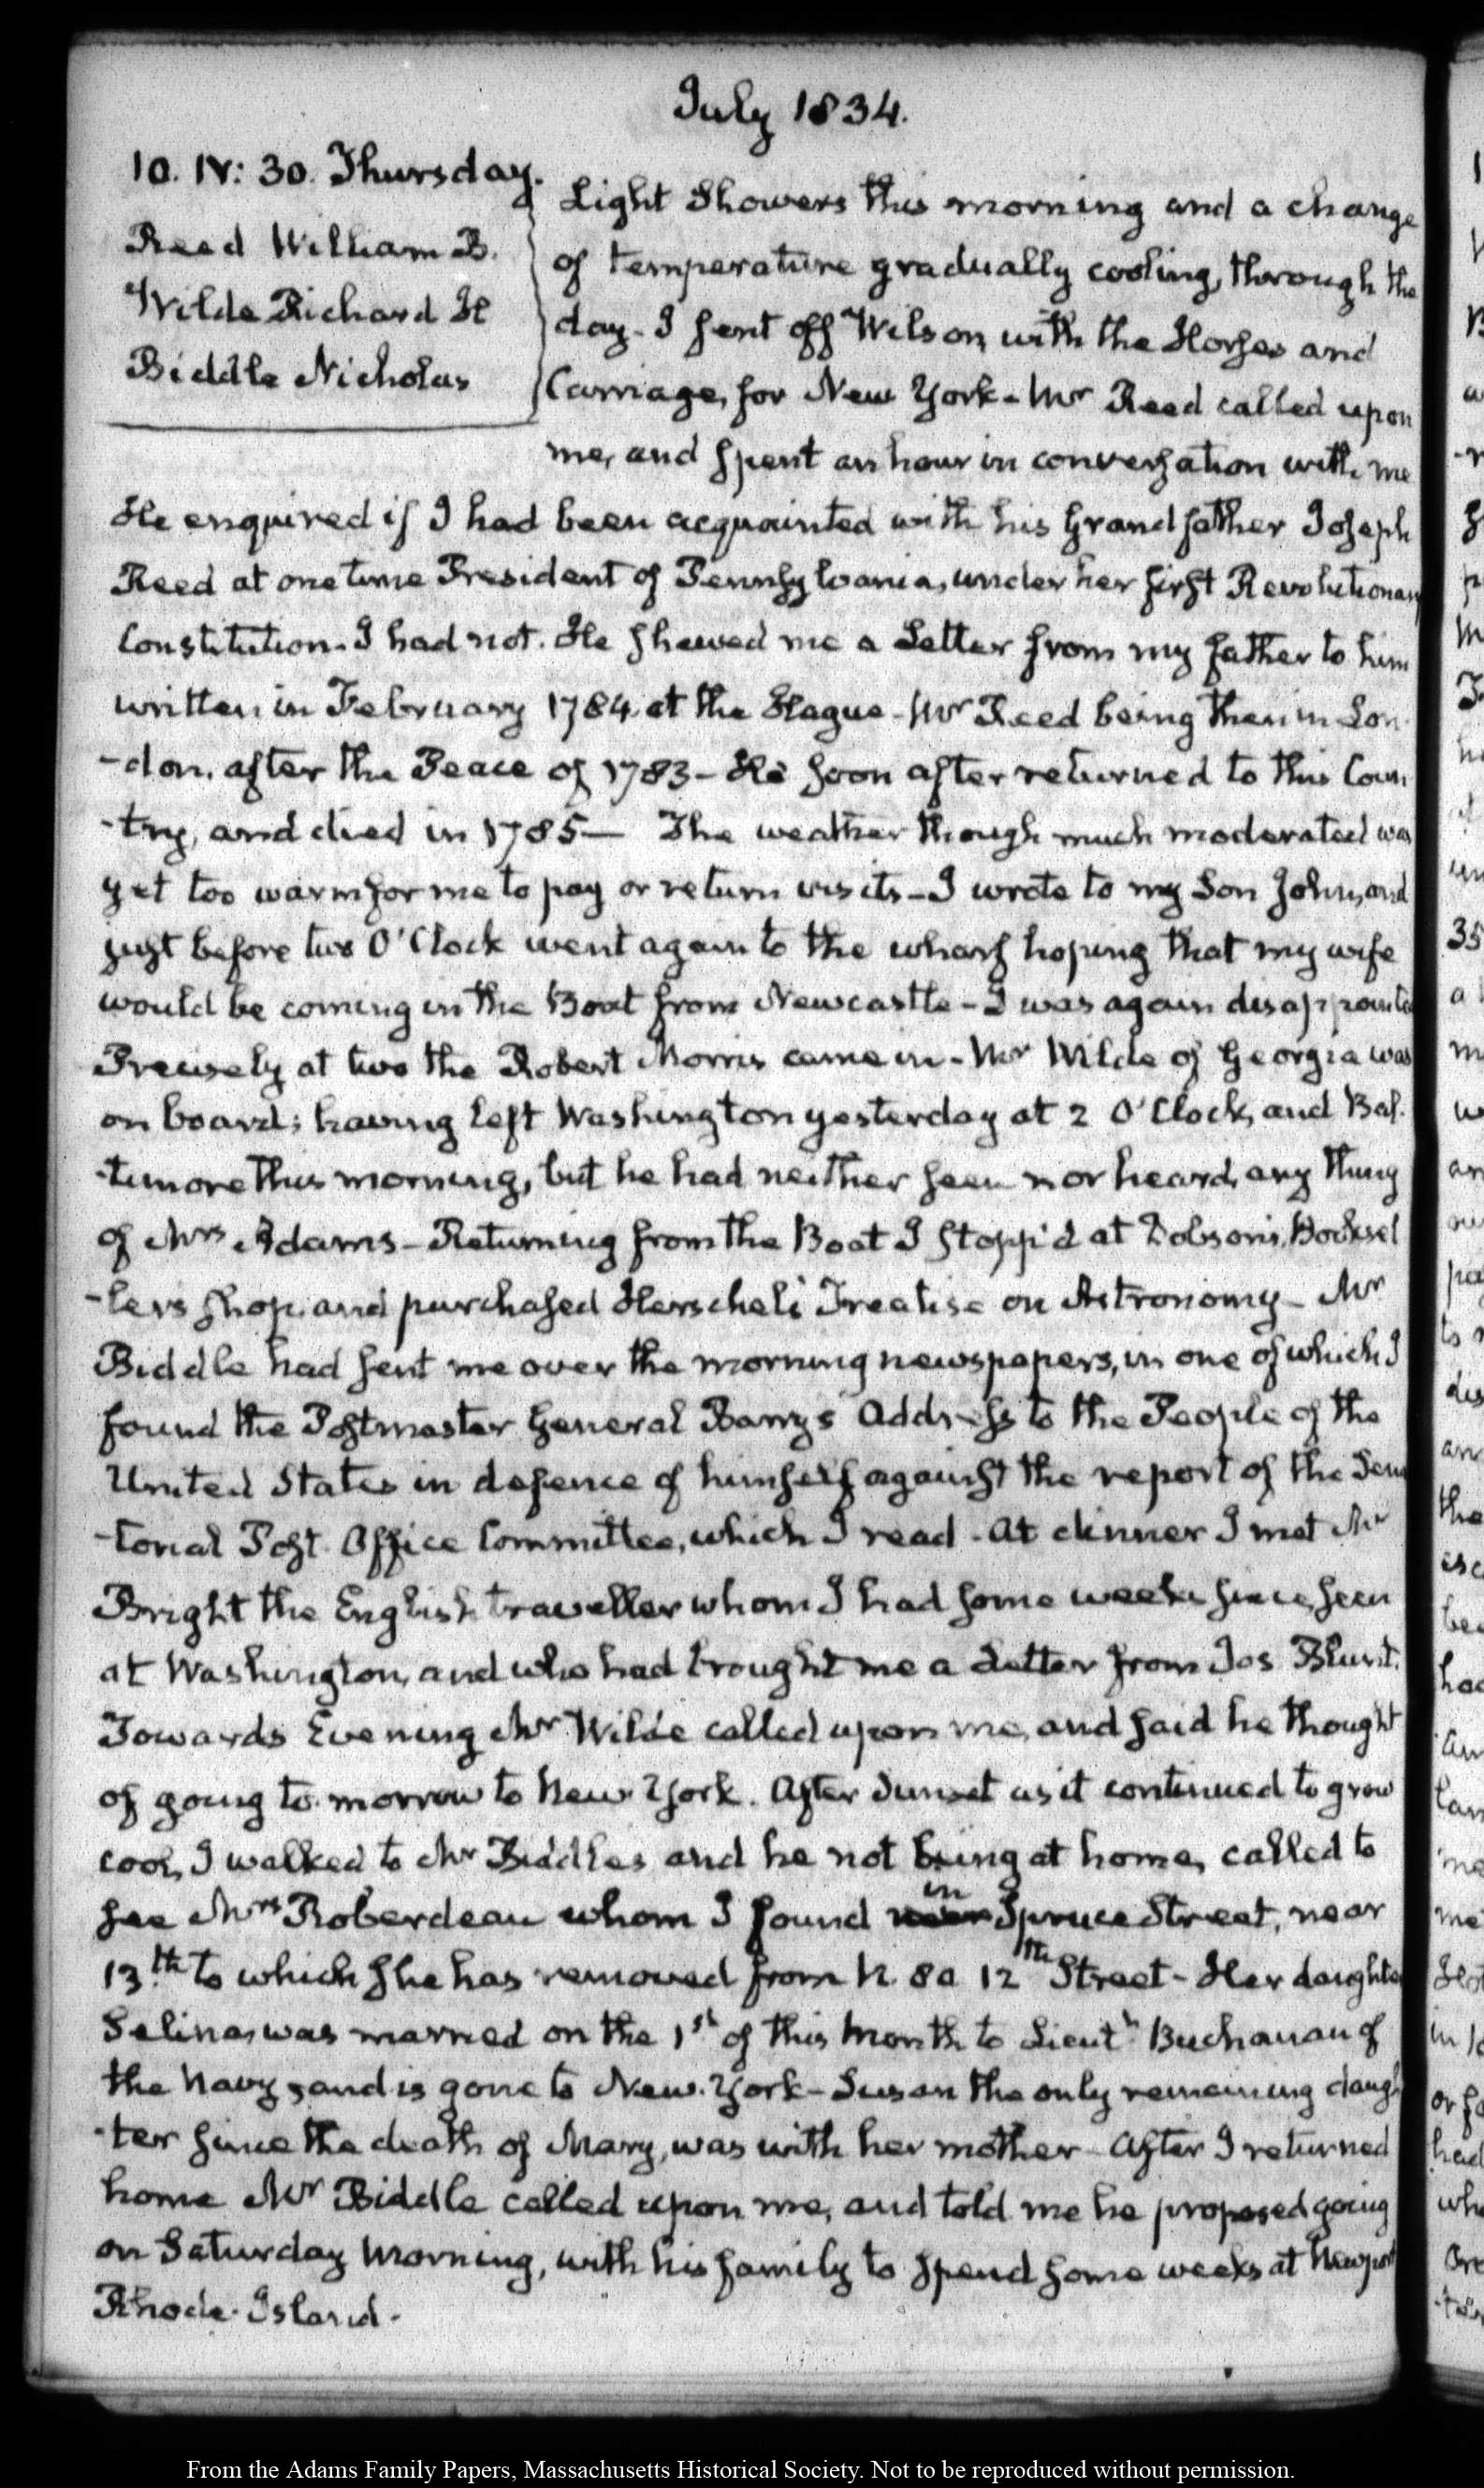 July 1834.
10. IV: 30. Thursday.
Reed William B.
Wilde Richard H
Biddle Nicholas
Light Showers this morning and a change
of temperature gradually cooling, through the
day. I sent off Wilson, with the Horses and
Carriage, for New York - Mr Reed called upon
me, and spent an hour in conversation with me
He enquired if I had been acquainted with his Grandfather Joseph
Reed at one time President of Pennsylvania, under her first Revolutionary
Constitution. I had not. He shewed me a Letter from my father to him
written in February 1784. at the Hague - Mr Reed being then in Lon
-don. after the Peace of 1783 - He soon after returned to this Coun
-try, and died in 1785 - The weather though much moderated was
yet too warm for me to pay or return visits - I wrote to my Son John, and
just before two O'Clock went again to the wharf hoping that my wife
would be coming in the Boat from Newcastle - I was again disappointed
Precisely at two the Robert Morris came in - Mr Wilde of Georgia was
on board; having left Washington yesterday at 2 O'Clock, and Bal.
-timore this morning, but he had neither seen nor heard, any thing
of Mrs Adams - Returning from the Boat I stopp'd at Dobson's, Booksel
-lers shop. and purchased Herschel's Treatise on Astronomy - Mr
Biddle had sent me over the morning newspapers, in one of which I
found the Postmaster General Barry's Address to the People of the
United States in defence of himself against the report of the Sena
-torial Post Office Committee, which I read - At dinner I met Mr
Bright the English traveller whom I had some weeks since, seen
at Washington, and who had brought me a Letter from Jos Blunt.
Towards Evening Mr Wilde called upon me, and said he thought
of going to-morrow to New York. After Sunset as it continued to grow
cool, I walked to Mr Biddle's and he not being at home, called to
see Mrs Roberdeau whom I found near in Spruce Street, near
13th. to which she has removed from N. 80 12th Street - Her daughter
Selina, was married on the 1st of this Month to Lieutt Buchanan of
the Navy, and is gone to New-York - Susan the only remaining daugh
-ter since the death of Mary, was with her mother - After I returned
home Mr Biddle called upon me, and told me he proposed going
on Saturday Morning, with his family to spend some weeks at Newport
Rhode-Island.
From the Adams Family Papers, Massachusetts Historical Society. Not to be reproduced without permission.